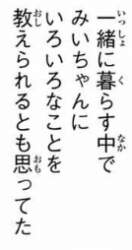 一緒に暮らす中で
みいちゃんに
いろいろなことを
教えられるとも思ってた